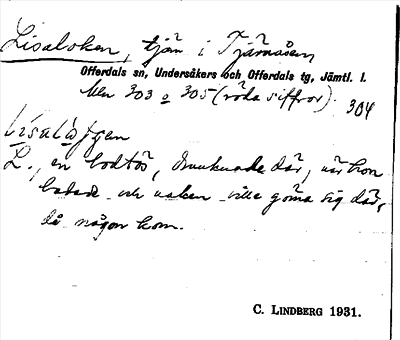 Lisaloken, tjärn i Tjärnåsen
Offerdals sn, Undersåkers och Offerdals tg, Jämtl. l.
303 o 305 (röda siffror). 304
L., en bodtös, drunknade där, när hon
badade och naken ville göma sig där,
då någon kom.
C. LINDBERG 1931.